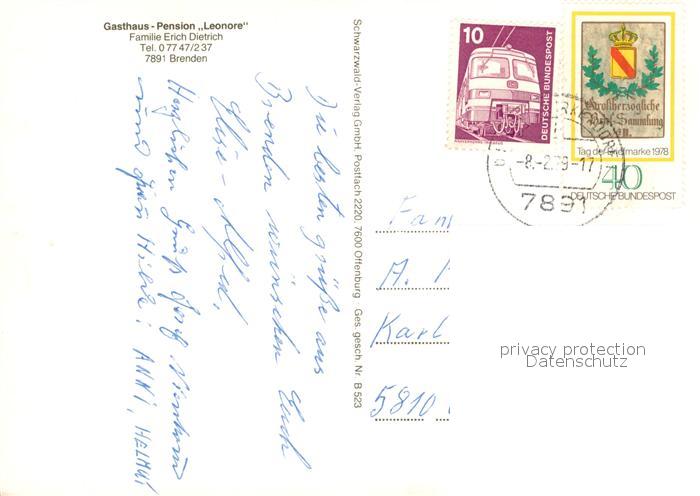 Gasthaus - Pension „Leonore"
Familie Erich Dietrich
Tel. 0 77 47/2 37
7891 Brenden
Die besten Grüße aus
Brenden wünschen Euch
Elise - Alfred.
Herzlichen Gruß
und Hilde: ANNI, HELMUT
Schwarzwald-Verlag GmbH, Postfach 2220, 7600 Offenburg Ges. gesch. Nr. B 523
10
DEUTSCHE BUNDESPOST
Großherzogliche
Post-Sammlung
Tag der Briefmarke 1978
40
DEUTSCHE BUNDESPOST
-8.-2.79-17
7891
Fam
A.
Karl
5810
privacy protection
Datenschutz